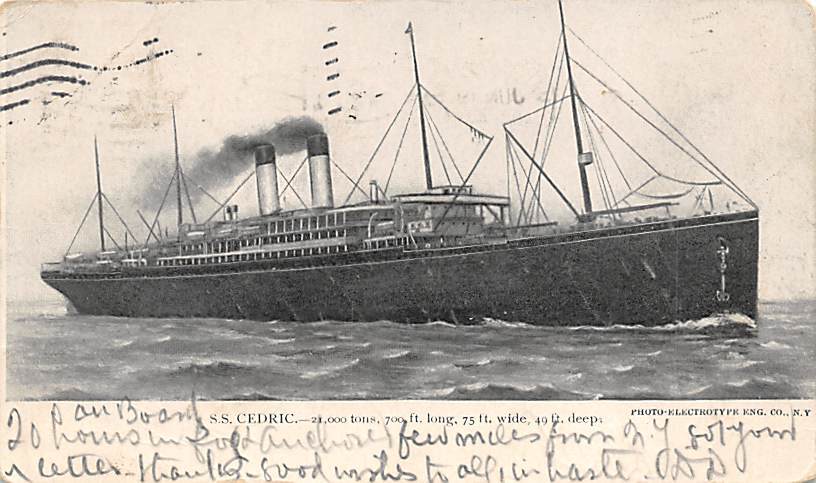 JUN
S.S. CEDRIC.—21,000 tons, 700 ft. long, 75 ft. wide, 49 ft. deep.
PHOTO-ELECTROTYPE ENG. CO., N.Y
on Board
20 hours in Fog Anchored few miles from N.Y got your
letter thanks good wishes to all, in haste.